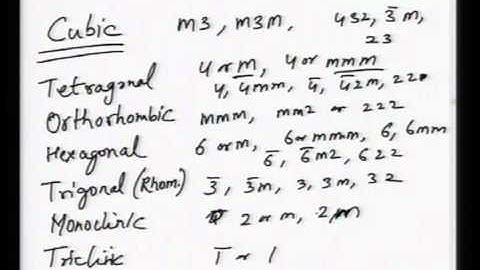 Cubic m3, m3m, 432, 3̅m,
23
Tetragonal 4 or m, 4 or mmm
4, 4mm, 4̅, 4̅2m, 22
Orthorhombic mmm, mm2 or 222
Hexagonal 6 or m, 6 or mmm, 6, 6mm
6̅, 6̅m2, 622
Trigonal (Rhom.) 3̅, 3̅m, 3, 3m, 32
Monoclinic 2 or m, 2, m
Triclinic 1̅ or 1